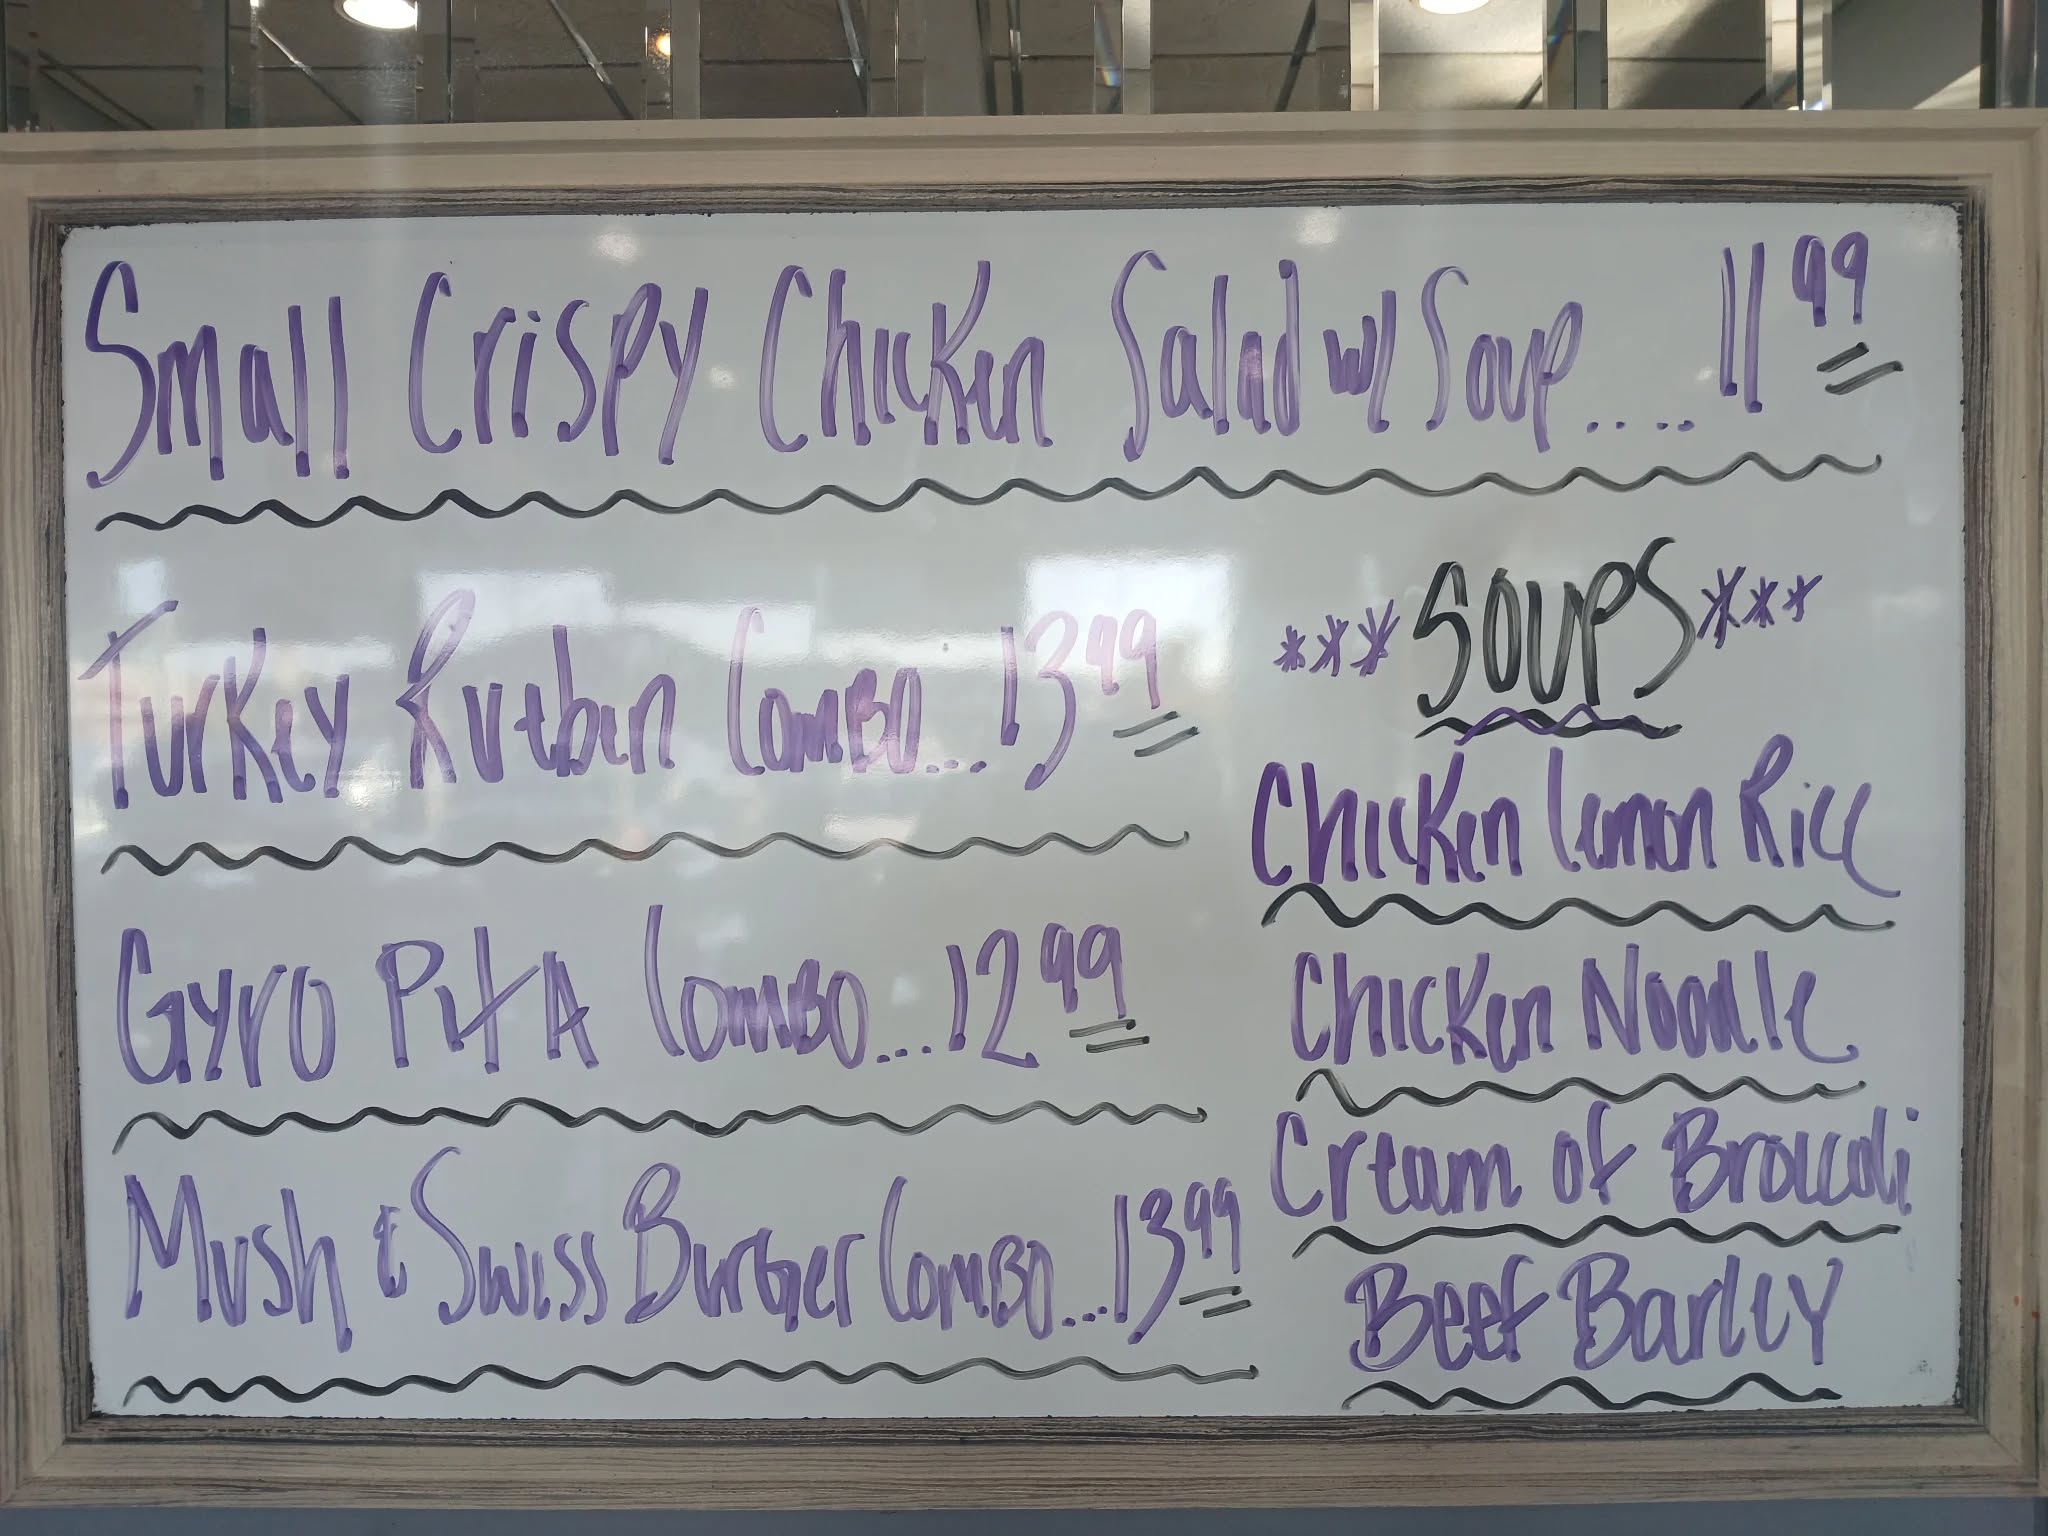 Small Crispy Chicken Salad w/ Soup..... 11 99
Turkey Rueben Combo... 13 99
Gyro PitA Combo... 12 99
Mush & Swiss Burger Combo... 13 99
*** SOUPS ***
Chicken Lemon Rice
Chicken Noodle
Cream of Broccoli
Beef Barley